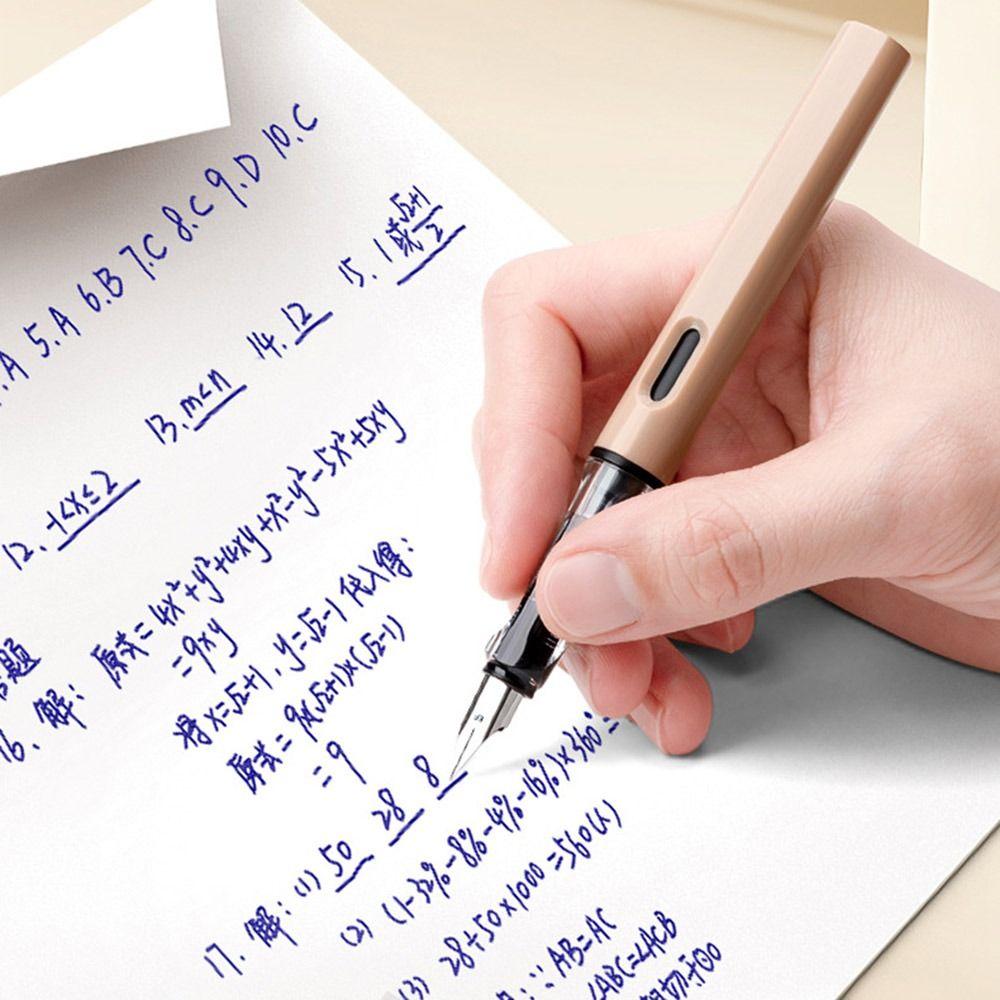 .A 5.A 6.B 7.C 8.C 9.D 10.C
12. -1<x≤2 13. m<n 14. 12 15. 1或(√2+1)/2
答题
16. 解: 原式=4x²+y²+4xy+x²-y²-5x²+5xy
=9xy
将x=√2+1, y=√2-1代入得:
原式=9×(√2+1)×(√2-1)
=9
17. 解: (1) 50 28 8
(2) (1-32%-8%-4%-16%)×360°=
(3) 28÷50×1000=560(人)
∵AB=AC
∠ABC=∠ACB
切于⊙O